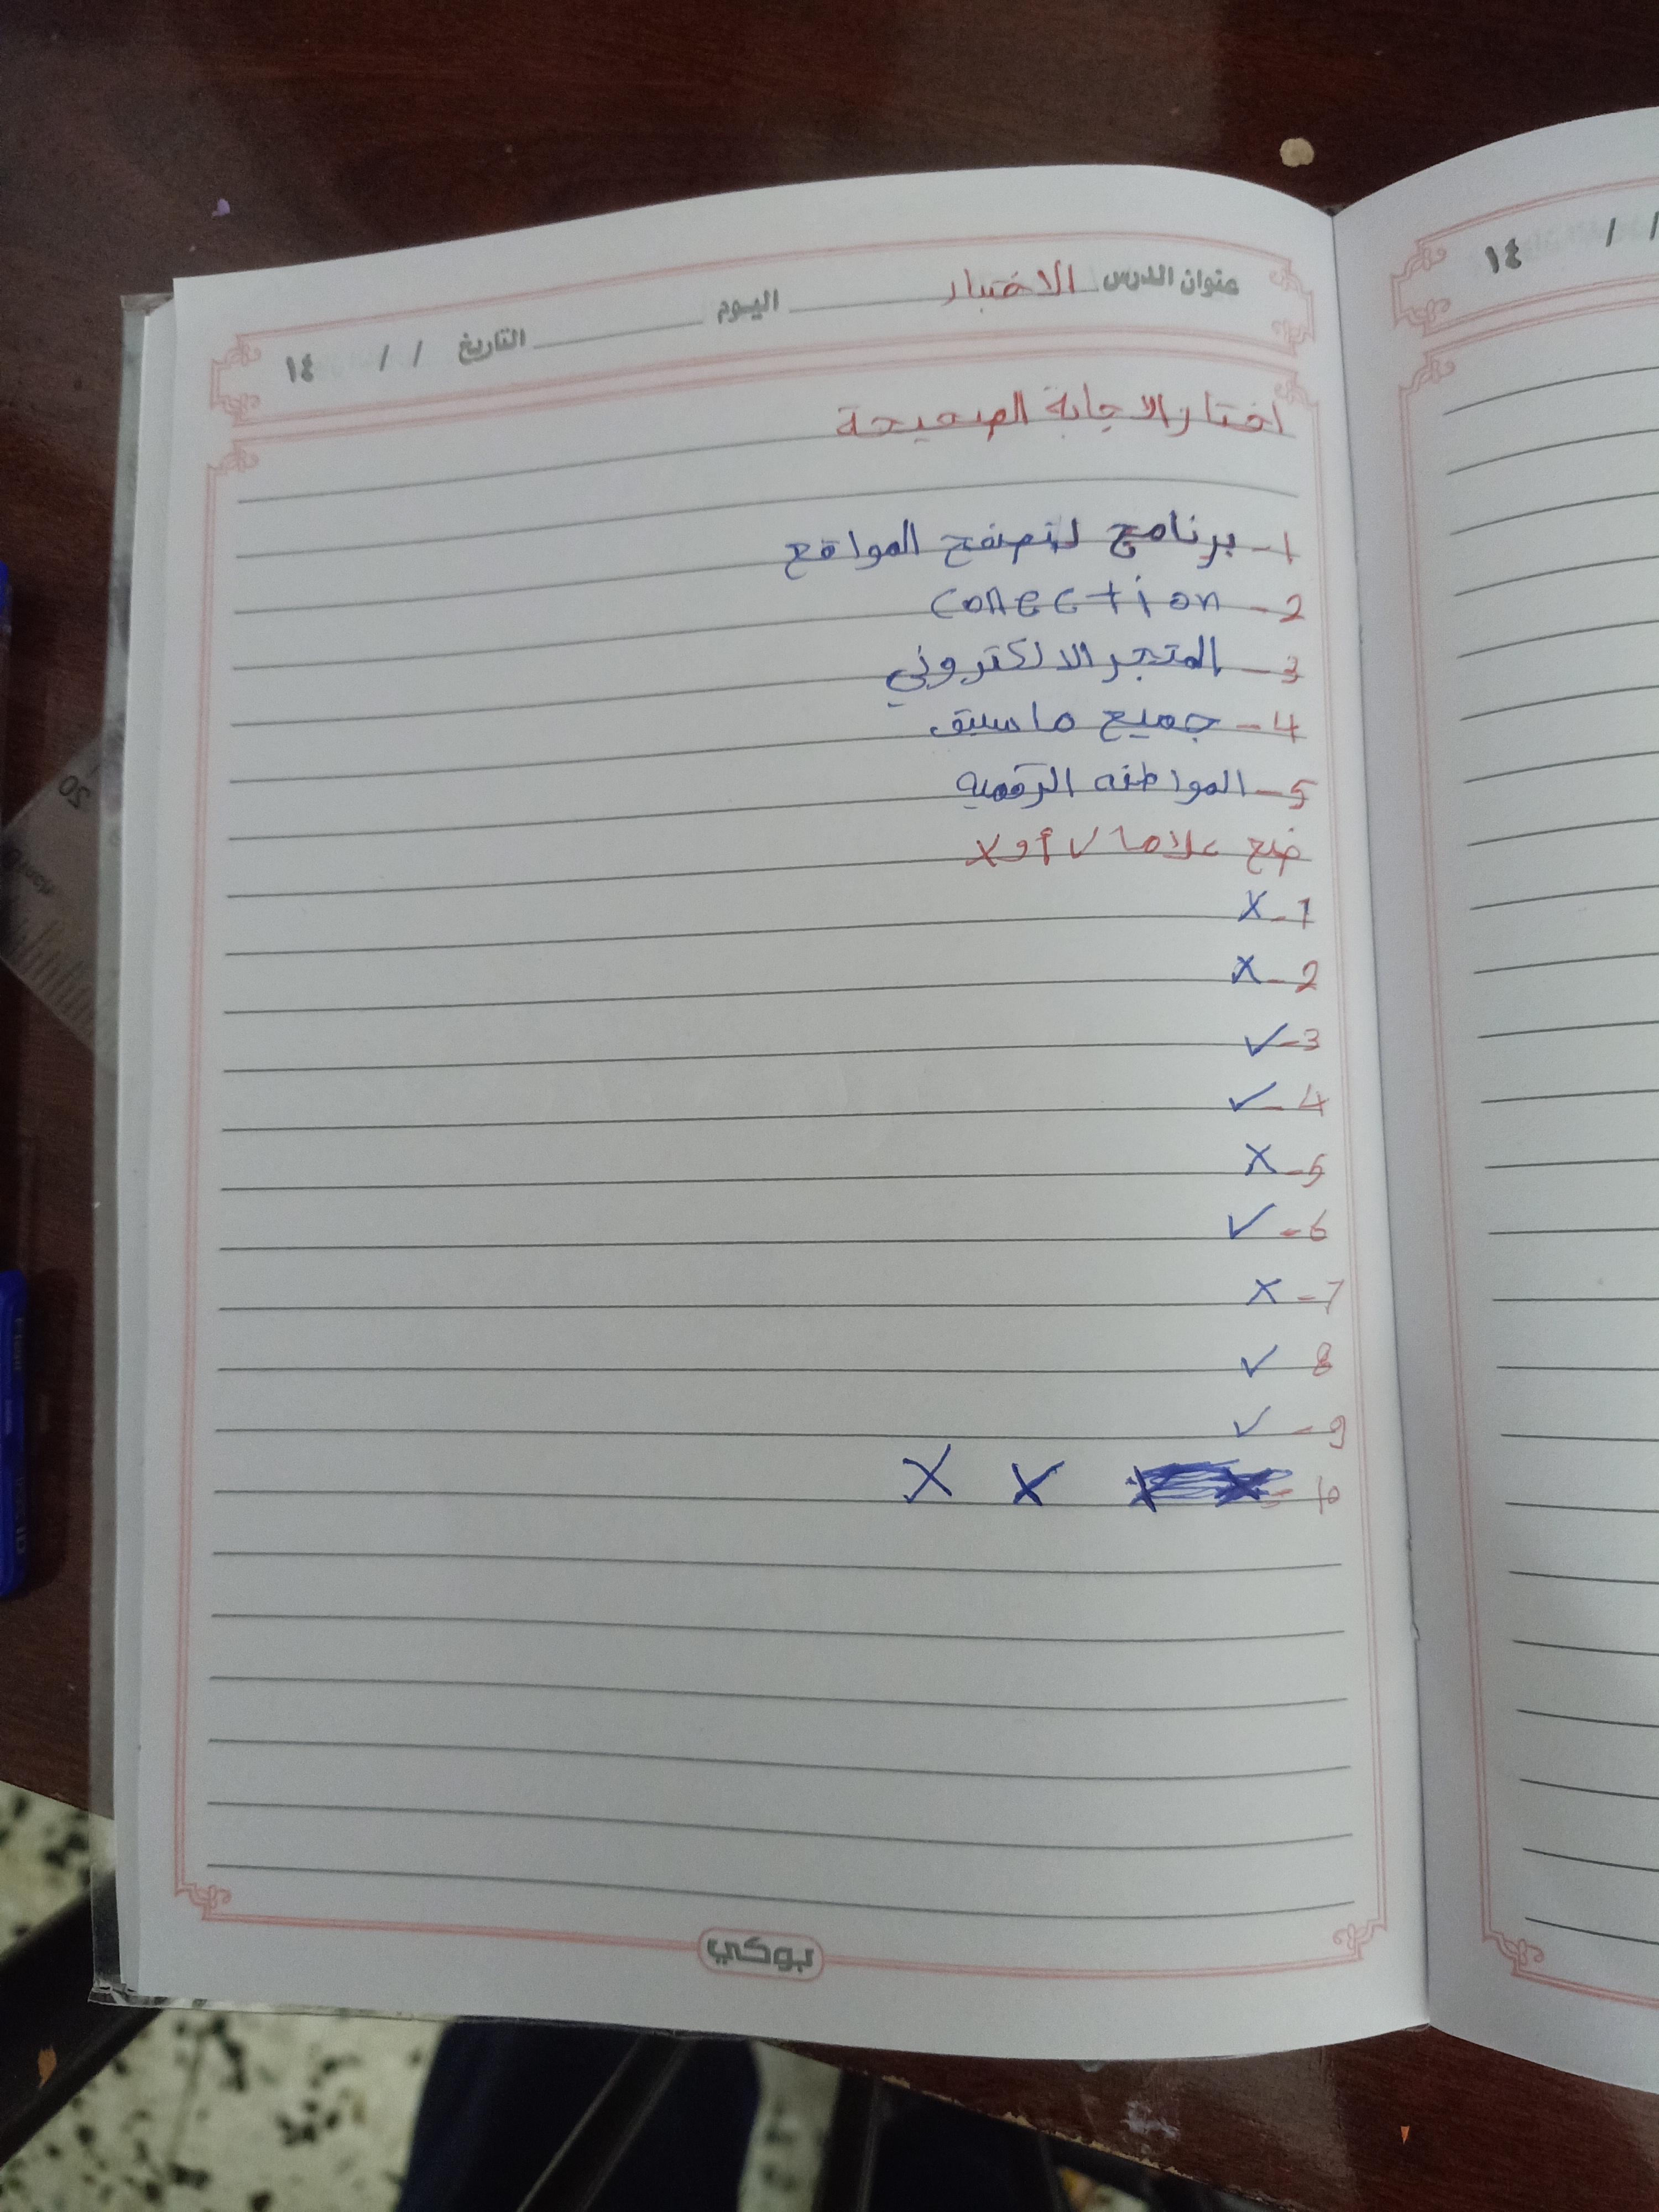 عنوان الدرس الاختبار اليوم التاريخ / / ١٤
اختار الاجابة الصحيحة
1- برنامج لتصفح المواقع
2- conection
3- المتجر الالكتروني
4- جميع ما سبق
5- المواطنه الرقميه
ضع علاما ✓ أو x
1- x
2- x
3- ✓
4- ✓
5- x
6- ✓
7- x
8 ✓
9- ✓
10- x x
بوكي
١٤ / /
20